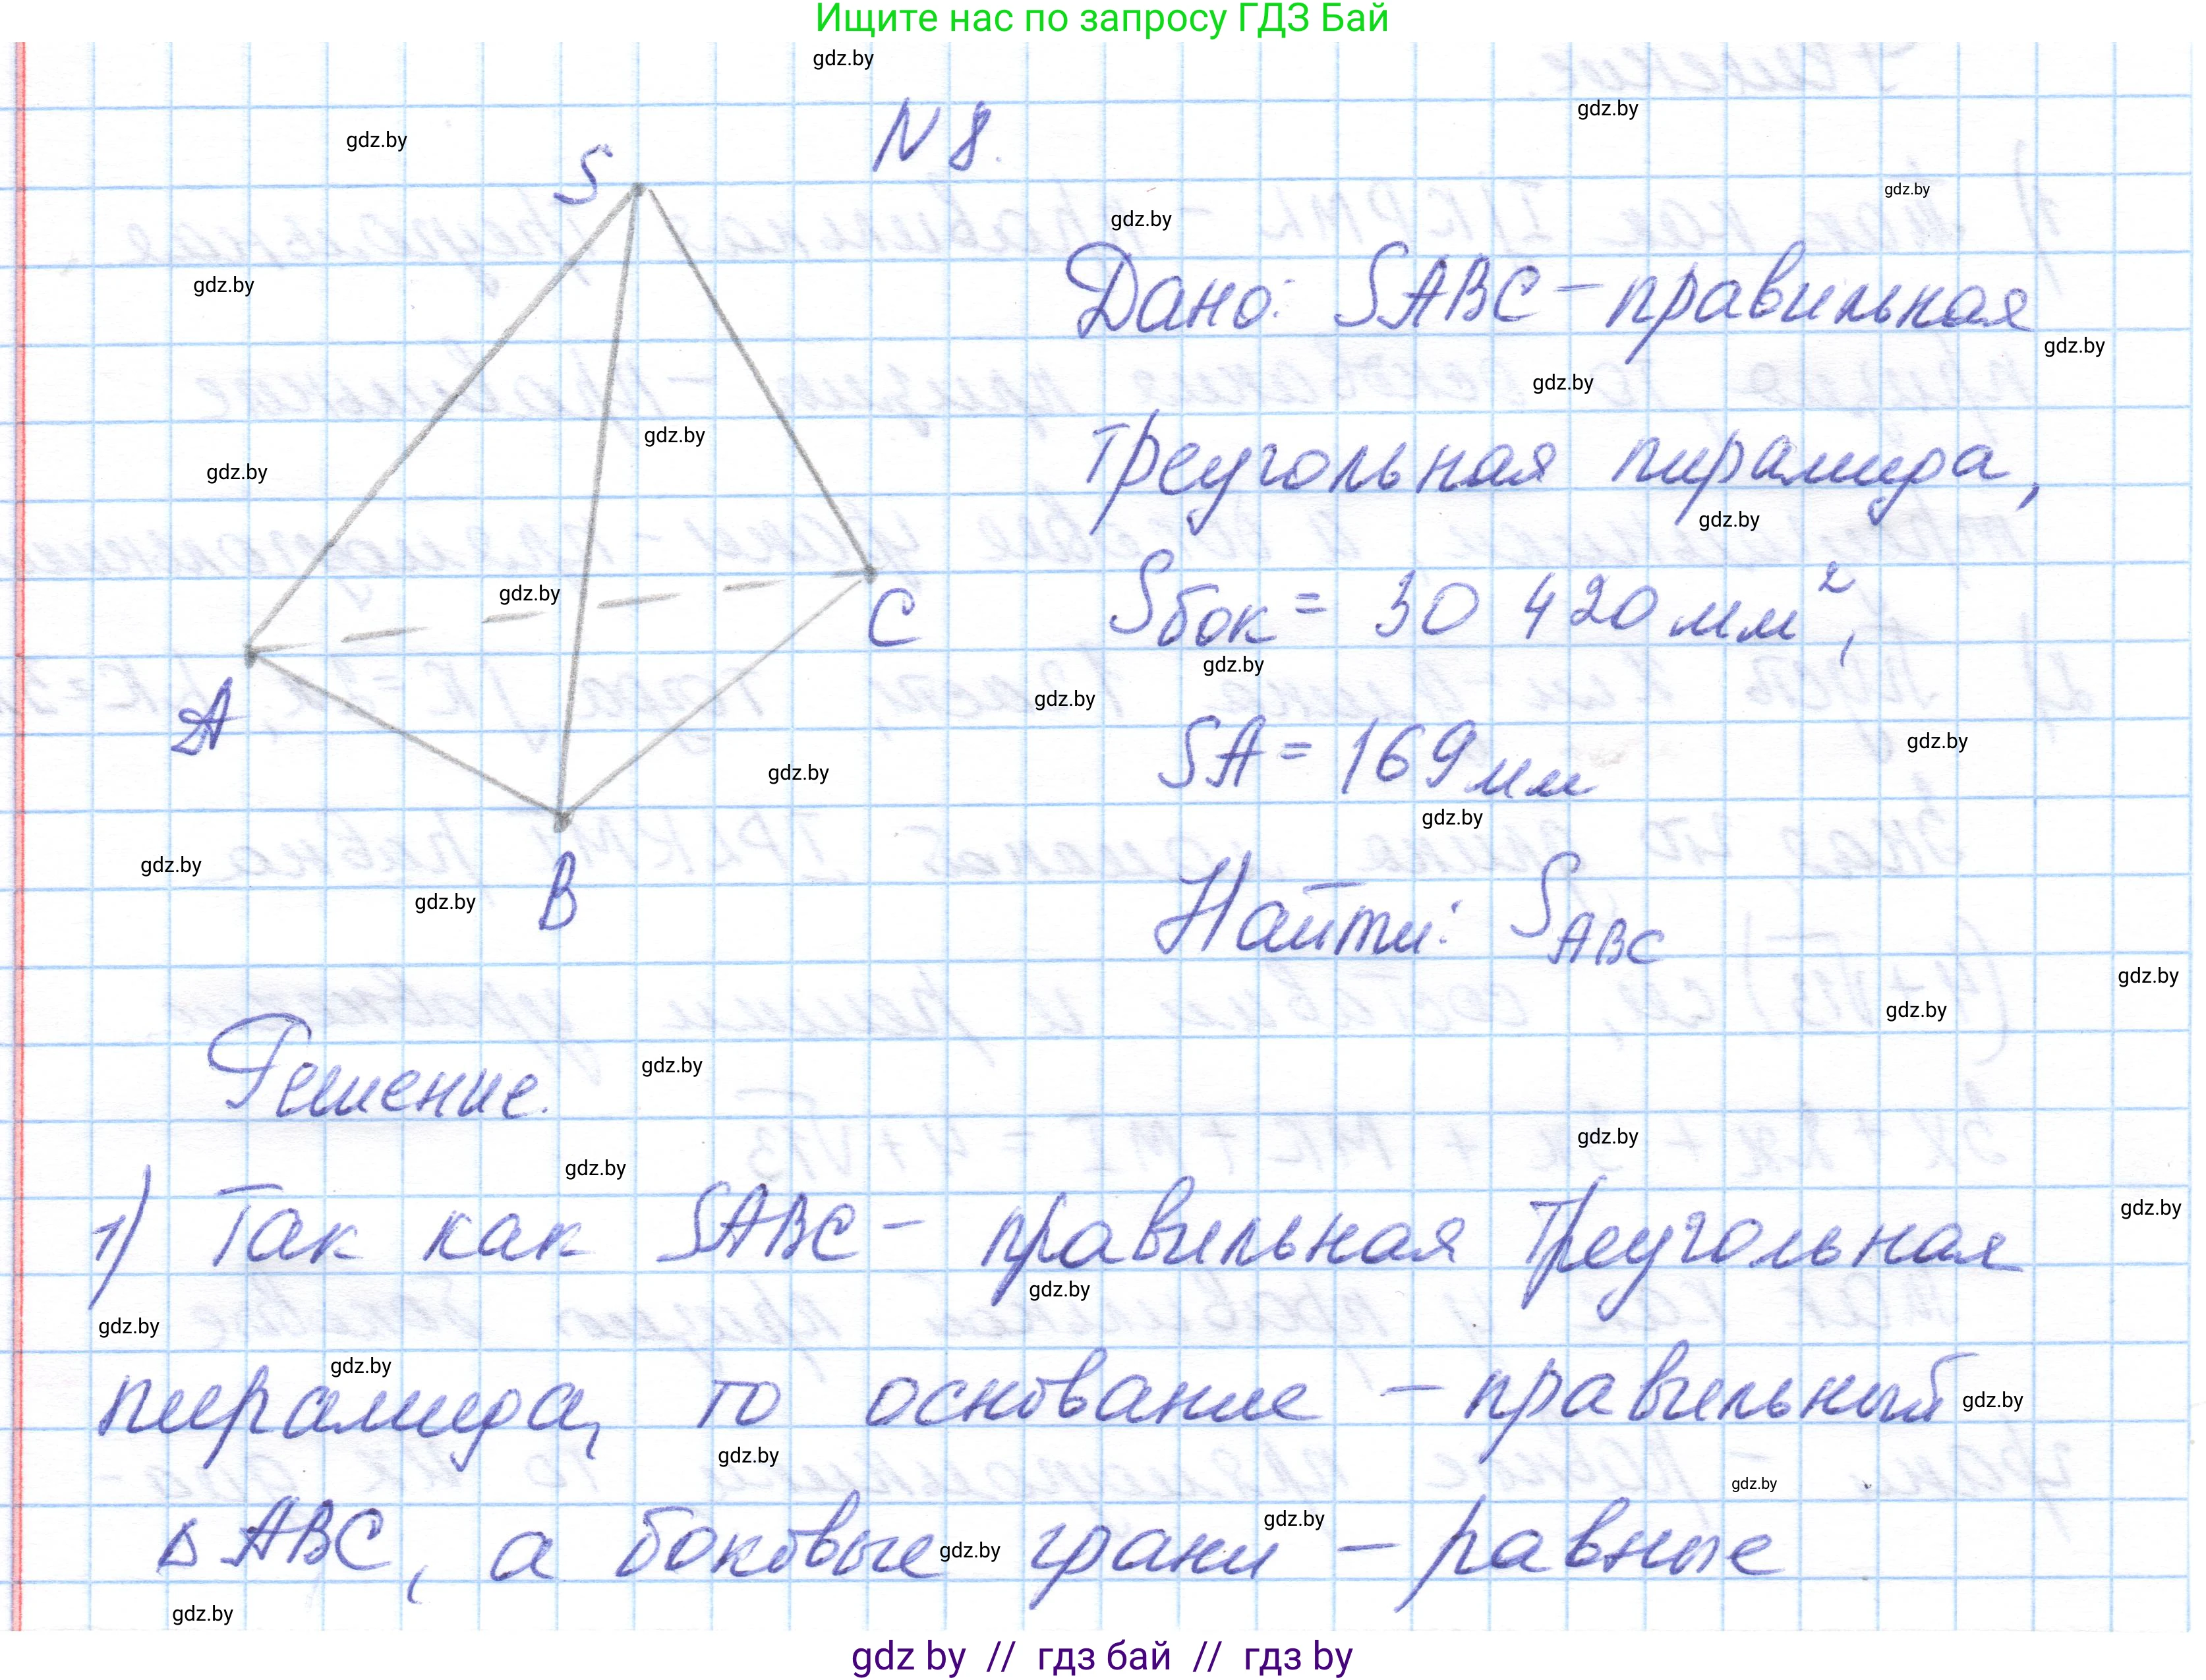 Ищите нас по запросу ГДЗ Бай
gdz.by
N 8.
gdz.by
gdz.by
S
gdz.by
gdz.by
Дано: SABC – правильная
gdz.by
gdz.by
gdz.by
треугольная пирамида,
gdz.by
gdz.by
gdz.by
Sбок = 30 420 мм²,
gdz.by
C
gdz.by
gdz.by
SA = 169 мм
A
gdz.by
gdz.by
gdz.by
Найти: S ABC
gdz.by
gdz.by
B
gdz.by
gdz.by
Решение.
gdz.by
gdz.by
gdz.by
1) Так как SABC – правильная треугольная
gdz.by
gdz.by
gdz.by
gdz.by
пирамида, то основание – правильный
gdz.by
gdz.by
gdz.by
△ ABC, а боковые грани – равные
gdz.by
gdz.by
gdz.by
gdz by // гдз бай // гдз by